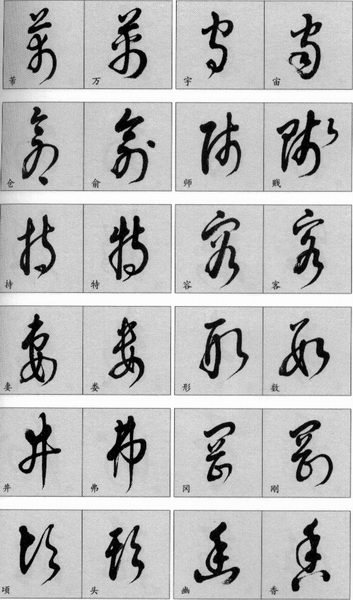 万 宇 宙
仓 俞 师 贱
持 特 容 客
妻 娄 形
井 弗 冈 刚
头 幽 香